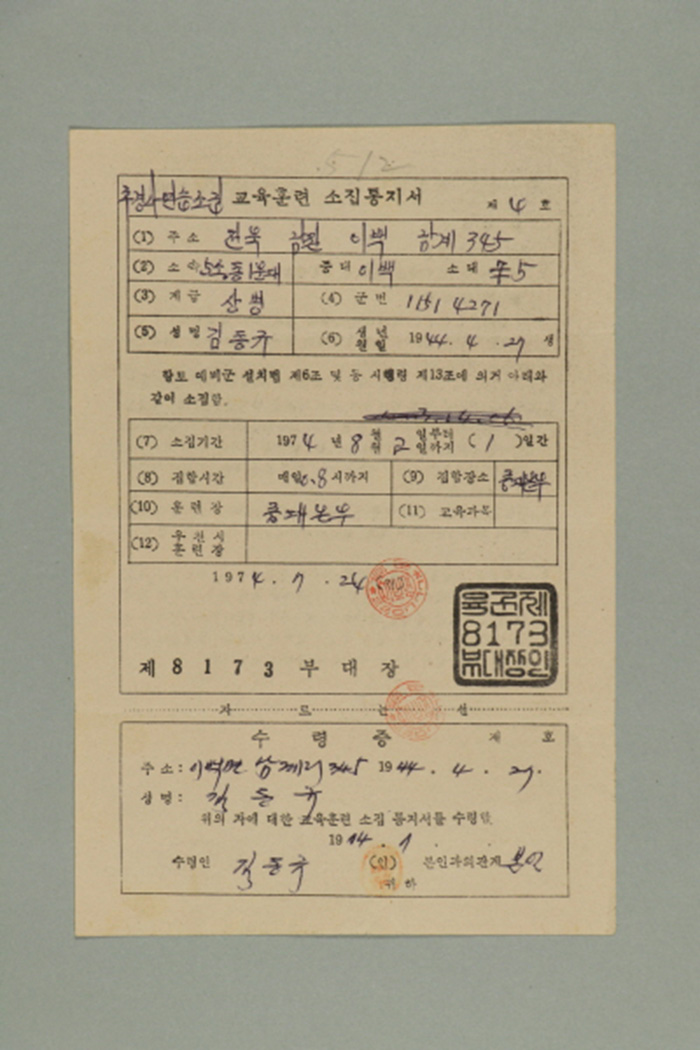 512
교육훈련 소집통지서 제 4 호
(1) 주소 전북 남원 이백 남계 345
(2) 소속 중대 이백 소대 5
(3) 계급 상병 (4) 군번 11514271
(5) 성명 김동규 (6) 생년월일 1944. 4. 27 생
향토 예비군 설치법 제6조 및 동 시행령 제13조에 의거 아래와
같이 소집함.
(7) 소집기간 1974년 8월 2 일부터 월 일까지 (1)일간
(8) 집합시간 매일 8시까지 (9) 집합장소 중대본부
(10) 훈련장 중대본부 (11) 교육과목
(12) 우천시 훈련장
1974. 7. 24
육군제
8173
부대장인
제 8173 부대장
자르는선
수령증 제 호
주소: 이백면 남계리 345 1944. 4. 27.
성명: 김동규
위의 자에 대한 교육훈련 소집 통지서를 수령함
1974. 7.
수령인 김동규 (인) 본인과의관계 본인
귀하